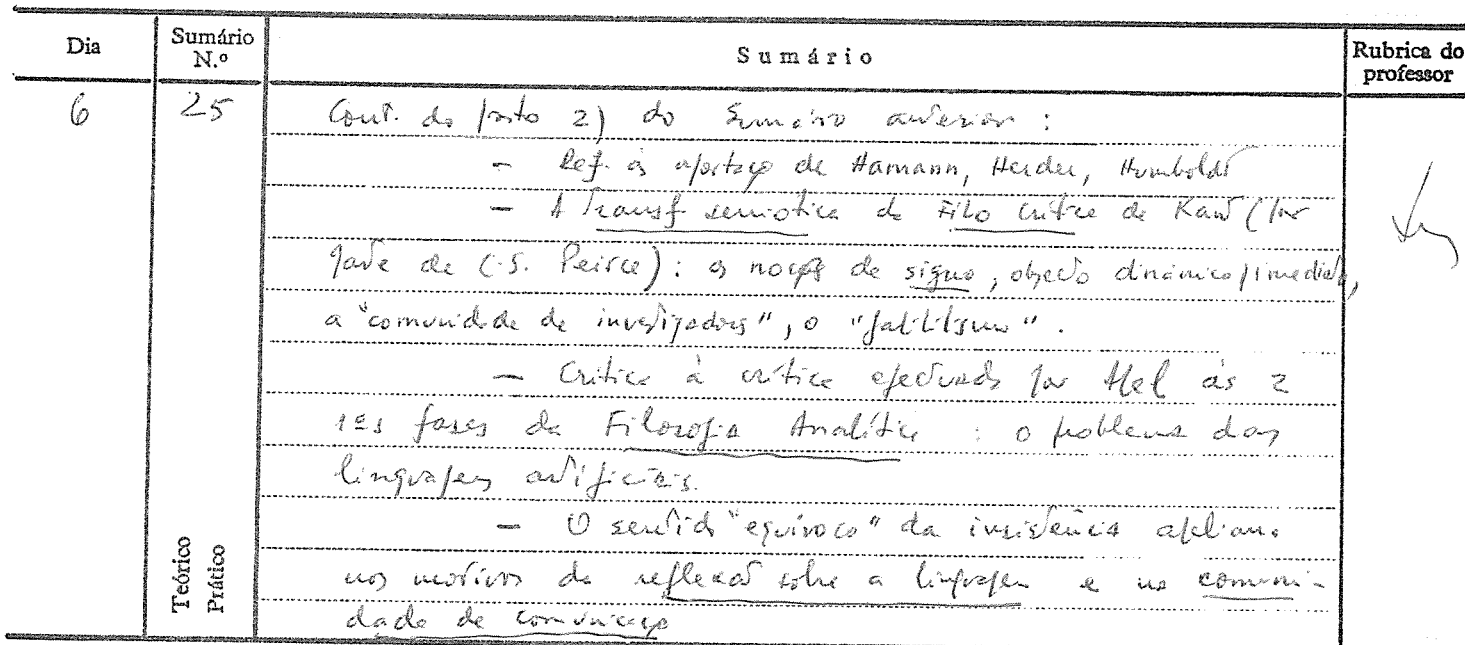 Dia
Sumário N.º
Sumário
Rubrica do professor
6
25
Cont. do ponto 2) do Sumário anterior :
- Ref. às aportaçs de Hamann, Herder, Humboldt
- A Transf. semiótica da Filo Crítica de Kant (por
parte de C.S. Peirce): as noções de signo, objecto dinâmico/imediato,
a "comunidade de investigadores", o "falibilismo".
- Crítica à crítica efectuada por Apel às 2
1ªs fases da Filosofia Analítica : o problema das
linguagens artificiais.
- O sentido "equívoco" da insistência apeliana
nos motivos da reflexão sobre a linguagem e na comuni-
dade de comunicação
Teórico
Prático